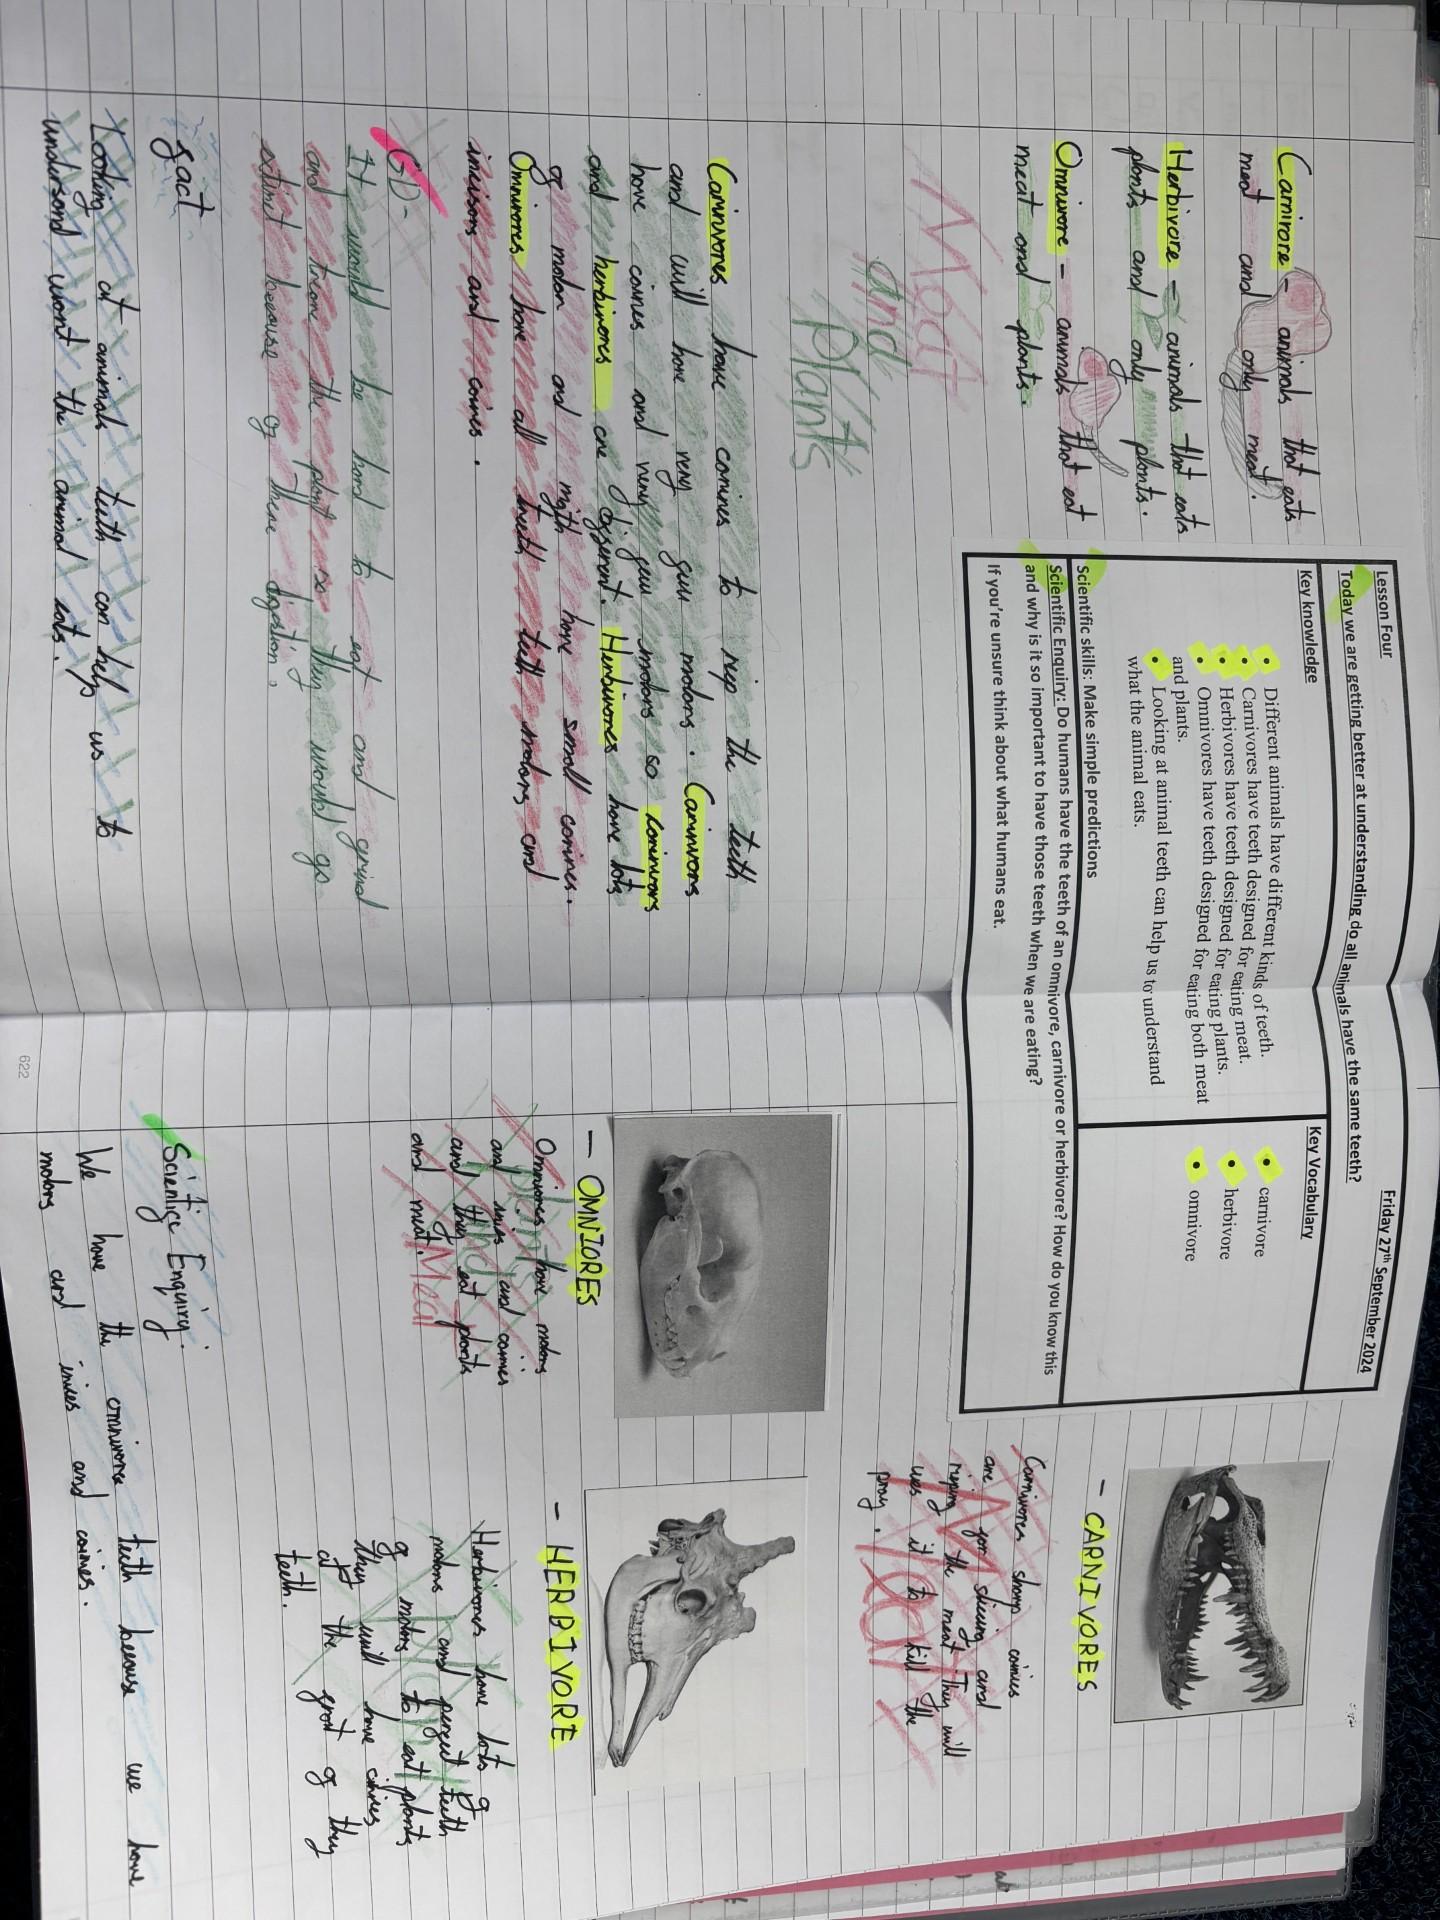 Lesson Four
Friday 27th September 2024
Today we are getting better at understanding do all animals have the same teeth?
Key knowledge
Different animals have different kinds of teeth.
Carnivores have teeth designed for eating meat.
Herbivores have teeth designed for eating plants.
Omnivores have teeth designed for eating both meat
and plants.
Looking at animal teeth can help us to understand
what the animal eats.
Key Vocabulary
carnivore
herbivore
omnivore
Scientific skills: Make simple predictions
Scientific Enquiry: Do humans have the teeth of an omnivore, carnivore or herbivore? How do you know this
and why is it so important to have those teeth when we are eating?
If you're unsure think about what humans eat.
Carnivore - animals that eats
meat and only meat.
Herbivore - animals that eats
plants and only plants.
Omnivore - animals that eat
meat and plants.
Meat
and
Plants
Carnivores have canines to rip the teeth
and will have very few molars. Carnivors
have canines and very few molars so carnivors
and herbivores are different. Herbivores have lots
of molars and migth have small canines.
Omnivores have all teeth molars and
incisors and canines.
GD-
It would be hard to eat and grind
and tear the plant so they would go
extinct because of there digestion.
fact
Looking at animals teeth can help us to
undersand wront the animal eats.
- CARNIVORES
Carnivores sharp canies
are for slicing and
riping the meat They will
ues it to kill the
pray.
Meat
- OMNIORES
Omniores have molars
and inies and canies
and they eat plants
and meat.
plants
and
Meat
- HERBIVORE
Herbivores have lots of
molars and perfet teeth
of molars to eat plants
they will have cinies
at the front of they
teeth.
Scientific Enquiry:
We have the omnivore teeth because we have
molars and inies and canies.
622